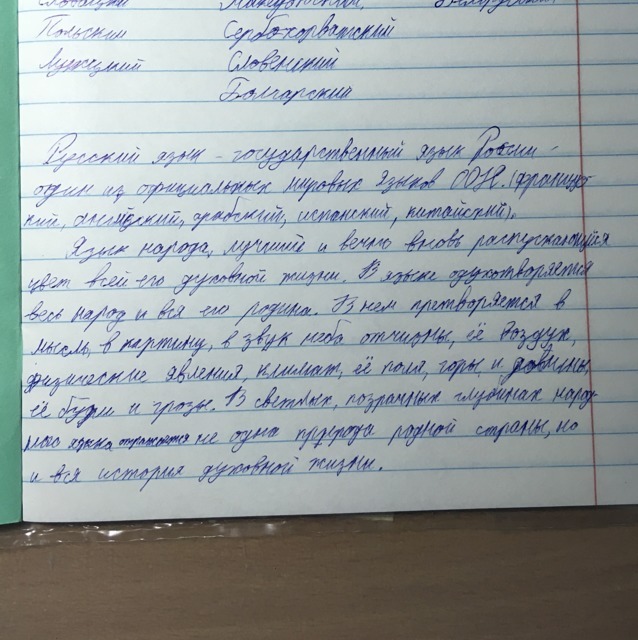 Польский Сербохорватский
Лужицкий Словенский
Болгарский
Русский язык - государственный язык России -
один из официальных мировых языков ООН. (француз
кий, английский, арабский, испанский, китайский).
Язык народа, лучший и вечно вновь распускающийся
цвет всей его духовной жизни. В языке одухотворяется
весь народ и вся его родина. В нем претворяется в
мысль, в картину, в звук неба отчизны, её воздух,
физические явления климат, её поля, горы и долины,
её бури и грозы. В светлых, прозрачных глубинах народ
ного языка отражается не одна природа родной страны, но
и вся история духовной жизни.